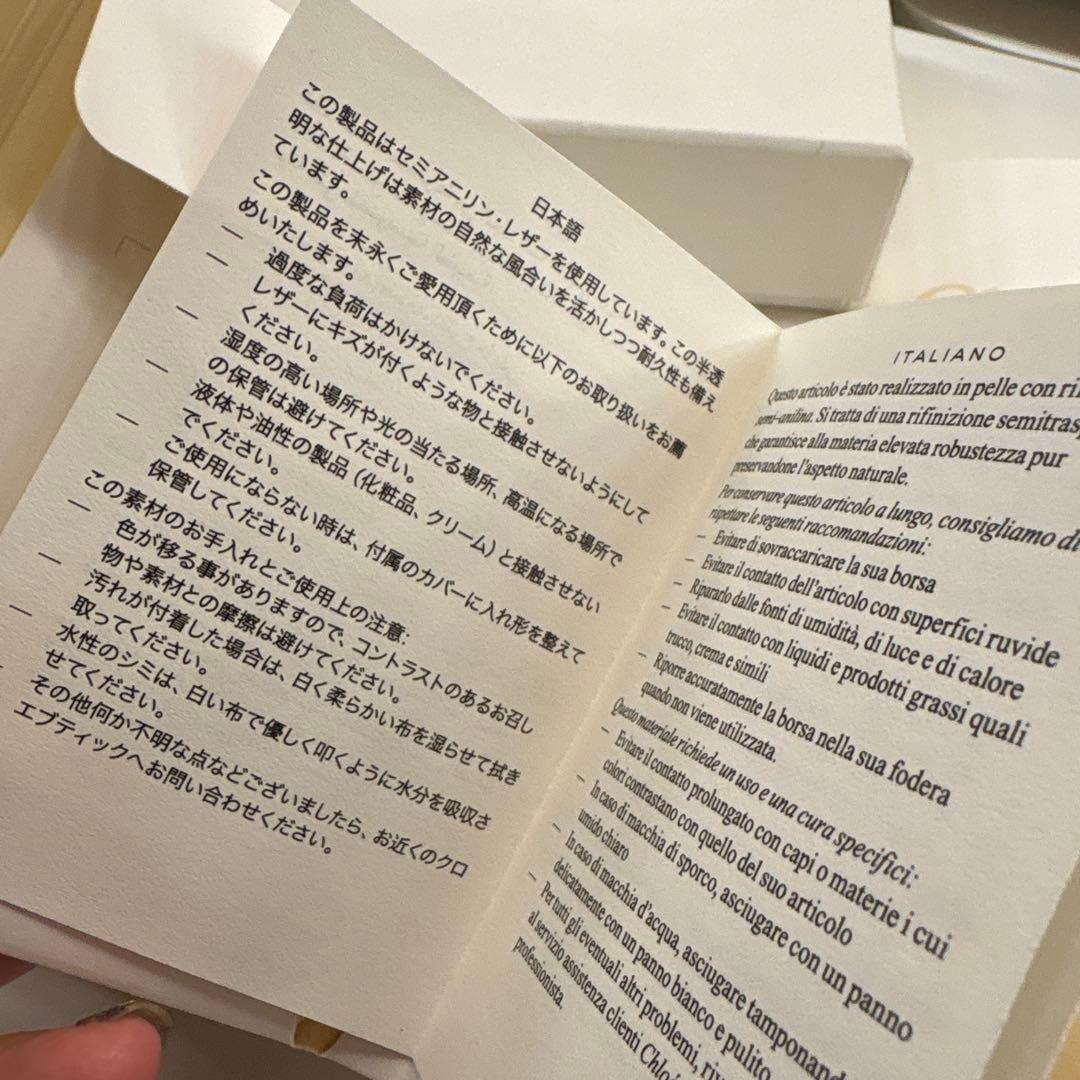 日本語
この製品はセミアニリン・レザーを使用しています。この半透
明な仕上げは素材の自然な風合いを活かしつつ耐久性も備え
ています。
この製品を末永くご愛用頂くために以下のお取り扱いをお薦
めいたします。
— 過度な負荷はかけないでください。
— レザーにキズが付くような物と接触させないようにして
ください。
— 湿度の高い場所や光の当たる場所、高温になる場所で
の保管は避けてください。
— 液体や油性の製品（化粧品、クリーム）と接触させない
でください。
— ご使用にならない時は、付属のカバーに入れ形を整えて
保管してください。
この素材のお手入れとご使用上の注意:
— 色が移る事がありますので、コントラストのあるお召し
物や素材との摩擦は避けてください。
— 汚れが付着した場合は、白く柔らかい布を湿らせて拭き
取ってください。
— 水性のシミは、白い布で優しく叩くように水分を吸収さ
せてください。
— その他何か不明な点などございましたら、お近くのクロ
エブティックへお問い合わせください。
ITALIANO
Questo articolo è stato realizzato in pelle con
semi-anilina. Si tratta di una rifinizione
che garantisce alla materia elevata robustezza pur
preservandone l'aspetto naturale.
Per conservare questo articolo a lungo, consigliamo di
rispettare le seguenti raccomandazioni:
— Evitare di sovraccaricare la sua borsa
— Evitare il contatto dell'articolo con superfici ruvide
— Ripararlo dalle fonti di umidità, di luce e di calore
— Evitare il contatto con liquidi e prodotti grassi quali
trucco, crema e simili
— Riporre accuratamente la borsa nella sua fodera
quando non viene utilizzata.
Questo materiale richiede un uso e una cura specifici:
— Evitare il contatto prolungato con capi o materie i cui
colori contrastano con quello del suo articolo
— In caso di macchia di sporco, asciugare con un panno
umido chiaro
— In caso di macchia d'acqua, asciugare
delicatamente con un panno bianco e pulito
— Per tutti gli eventuali altri problemi,
al servizio assistenza clienti Chloé
professionista.